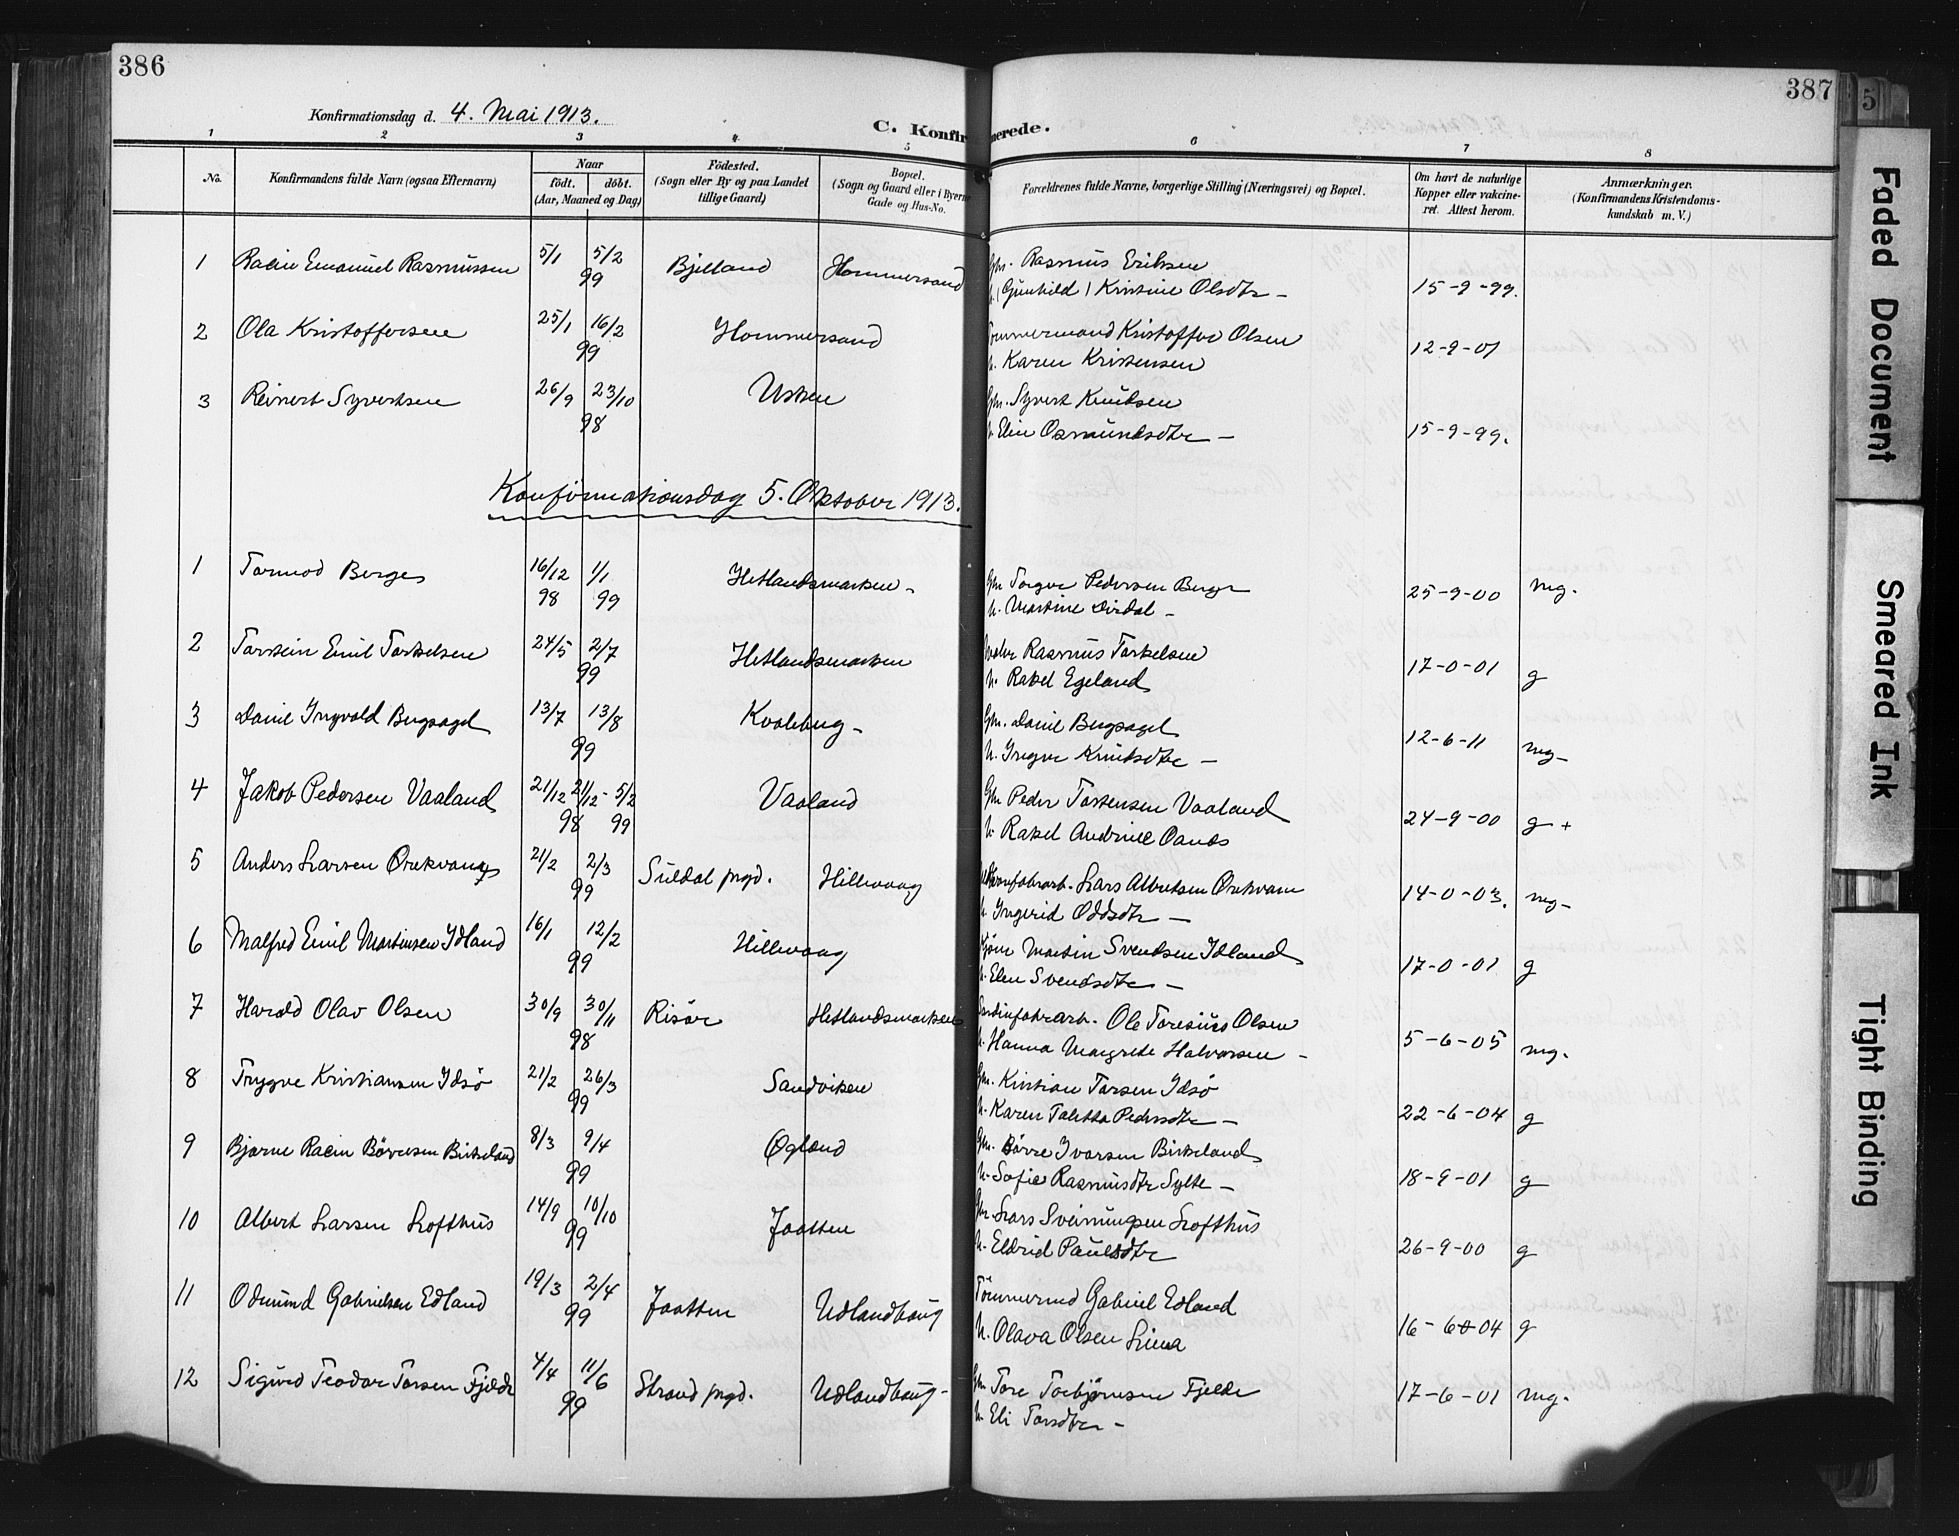 386
387
Konfirmationsdag d. 4. Mai 1913.
C. Konfirmerede.
1 2 3 4 5 6 7 8
No.
Konfirmandens fulde Navn (ogsaa Efternavn)
Naar
födt. döbt.
(Aar, Maaned og Dag)
Födested.
(Sogn eller By og paa Landet
tillige Gaard)
Bopæl.
(Sogn og Gaard eller i Byerne
Gade og Hus-No.
Forældrenes fulde Navne, borgerlige Stilling (Næringsvei) og Bopæl.
Om havt de naturlige
Kopper eller vakcine-
ret. Attest herom.
Anmærkninger.
(Konfirmandens Kristendoms-
kundskab m. V.)
1 Rasmus Emanuel Rasmussen 5/1 5/2 99 Bjelland Hommersand Gm. Rasmus Eriksen
h. (Gunhild) Kristine Olsdtr - 15-9-99.
2 Ola Kristoffersen 25/1 16/2 99 Hommersand Tømmermand Kristoffer Olsen
h. Karen Kristensen 12-9-01
3 Reinert Syvertsen 26/9 23/10 98 Usken Gm. Syvert Knudsen
h. Elin Osmundsdtr - 15-9-99.
Konfirmationsdag 5. Oktober 1913.
1 Tormod Berge 16/12 98 1/1 99 Hetlandsmarken - Gm Torger Pedersen Berge
h. Martine Dirdal - 25-9-00 mg.
2 Torstein Emil Torkelsen 24/5 2/7 99 Hetlandsmarken Rasmus Torkelsen
h. Rakel Egeland 17-0-01 g
3 Daniel Ingvald Bergsagel 13/7 13/8 99 Kvaleberg - Gm. Daniel Bergsagel
h. Inger Knutsdtr - 12-6-11 mg-
4 Jakob Pedersen Vaaland 21/12 21/12 - 5/2 98 99 Vaaland Gm Peder Torstensen Vaaland
h. Rakel Andrine Oands 24-9-00 g +
5 Anders Larsen Ørekvam 21/2 2/3 99 Suldal prgd. Hillevaag Lars Albretsen Ørekvam
h. Ingerid Oddsdtr - 14-0-03. mg-
6 Malfred Emil Martinsen Idland 16/1 12/2 99 Hillevaag Martin Svendsen Idland
h. Elen Svendsdtr - 17-0-01 g
7 Harald Olav Olsen 30/9 30/11 98 Risör Hetlandsmarken Sardinfabrarb. Ole Toresius Olsen
h. Hanna Margrete Halvorsen - 5-6-05 mg.
8 Trygve Kristiansen Idsö 21/2 26/3 99 Sandviken Gm. Kristian Torsen Idsö
h. Karen Taletta Pedersdtr - 22-6-04 g
9 Bjarne Rasmus Børresen Birkeland 8/3 9/4 99 Øgland Gm. Børre Ivarsen Birkeland
h. Sofie Rasmusdtr Sylte - 18-9-01 g
10 Albert Larsen Lofthus 14/9 10/10 99 Jaatten Gm. Lars Sveinungsen Lofthus
h. Eldrid Paulsdtr 26-9-00 g
11 Odmund Gabrielsen Edland 19/3 2/4 99 Jaatten Udlandhaug Tömmermd Gabriel Edland
h. Olava Olsen Lima 16-6-04 g
12 Sigurd Teodor Torsen Fjelde 4/4 11/6 99 Strand prgd. Udlandhaug - Gm Tore Torbjørnsen Fjelde
h. Eli Torsdtr - 17-6-01 mg.
5
Faded Document
Smeared Ink
Tight Binding